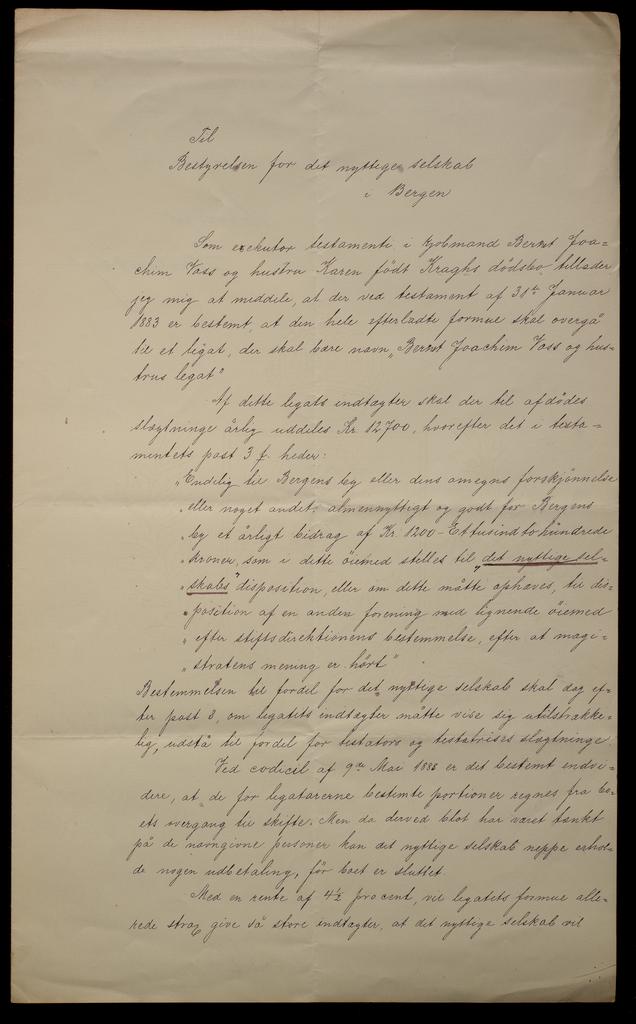 Til
Bestyrelsen for det nyttige selskab
i Bergen
Som exekutor testamenti i kjøbmand Bernt Joa-
chim Voss og hustru Karen født Kraghs dødsbo tillader
jeg mig at meddele, at der ved testament af 31te Januar
1883 er bestemt, at den hele efterladte formue skal overgå
til et legat, der skal bære navn "Bernt Joachim Voss og hus-
trus legat"
Af dette legats indtægter skal der til afdødes
slægtninge årlig uddeles Kr. 12700, hvorefter det i testa-
mentets post 3 f. heder:
"Endelig til Bergens by eller dens omegns forskjønnelse
"eller noget andet, almennyttigt og godt for Bergens
"by et årligt bidrag af Kr. 1200 - Ettusindtohundrede
"kroner, som i dette øiemed stelles til "det nyttige sel-
"skabs" disposition, eller om dette måtte ophæves, til dis-
"position af en anden forening med lignende øiemed
"efter stiftsdirektionens bestemmelse, efter at magi-
"stratens mening er hørt"
Bestemmelsen til fordel for det nyttige selskab skal dog ef-
ter post 8, om legatets indtægter måtte vise sig utilstrække-
lig, udstå til fordel for testators og testatrises slægtninge.
Ved codicil af 9de Mai 1888 er det bestemt endvi-
dere, at de for legatarerne bestemte portioner regnes fra bo-
ets overgang til skifte. Men da derved blot har været tænkt
på de navngivne personer kan det nyttige selskab neppe erhol-
de nogen udbetaling, før boet er sluttet.
Med en rente af 4½ procent, vil legatets formue alle-
rede strax give så store indtægter, at det nyttige selskab vil